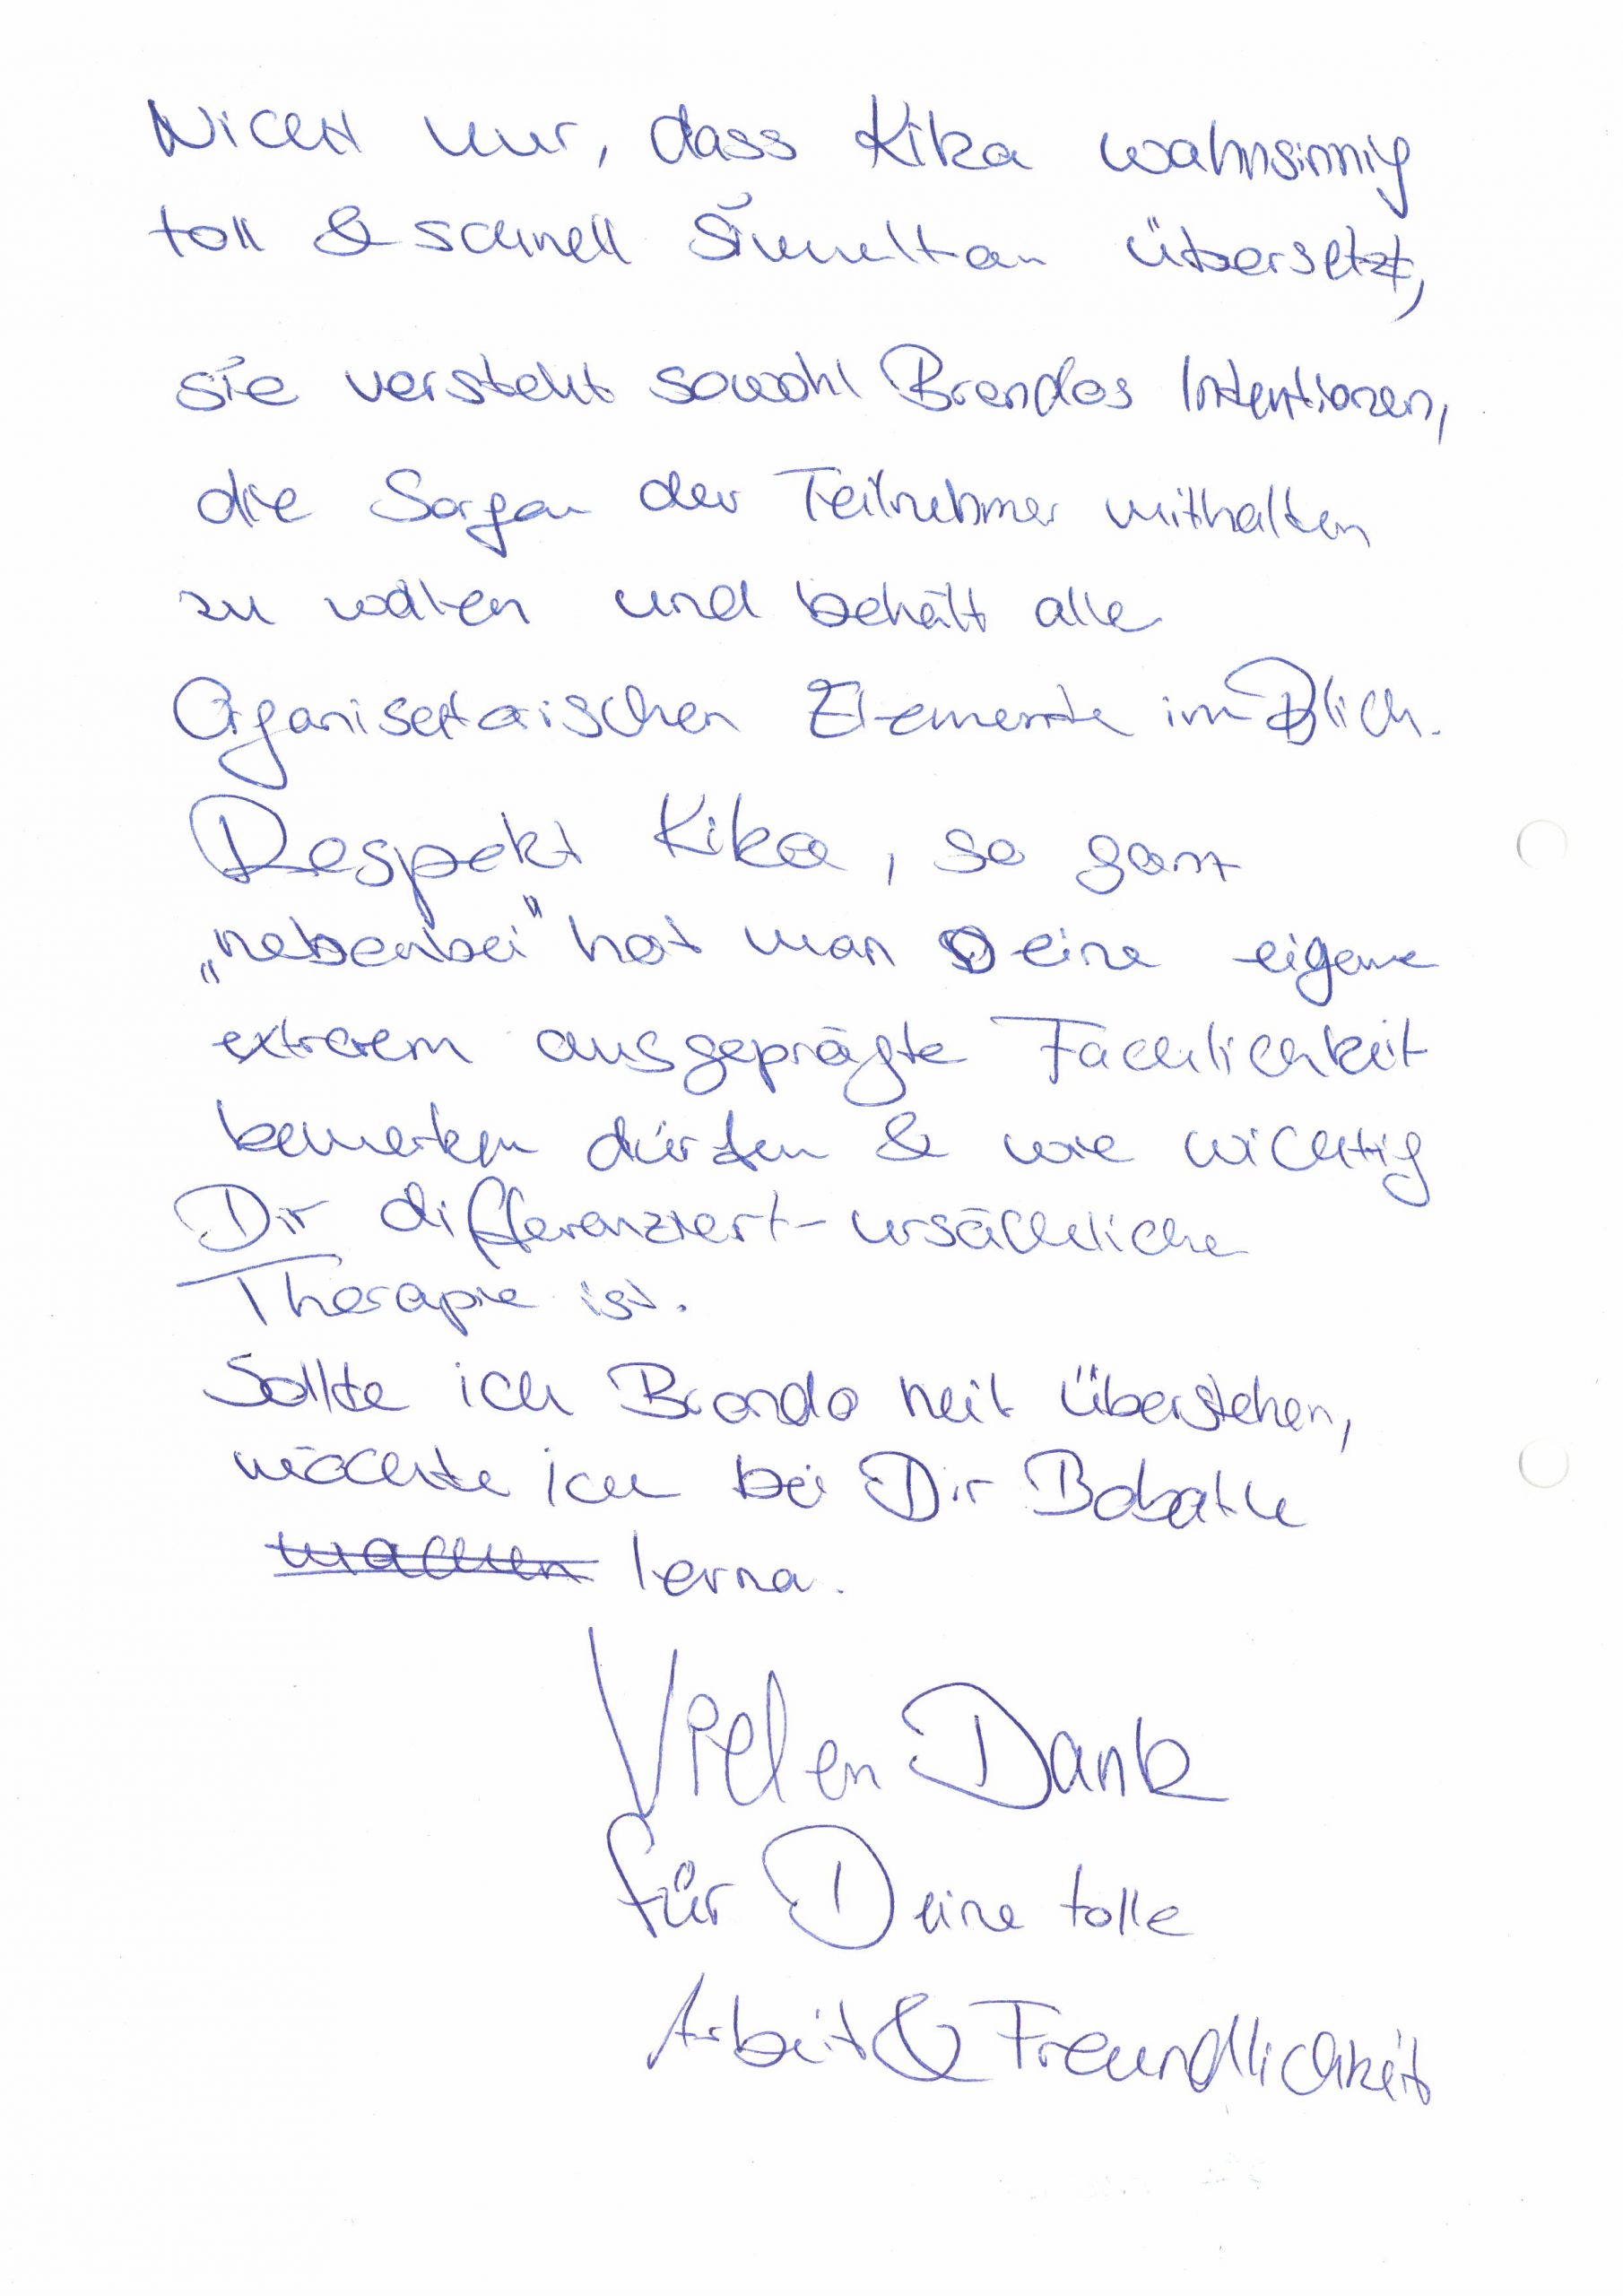 Nicht nur, dass Kika wahnsinnig
toll & schnell Simultan übersetzt,
sie versteht sowohl Brendas Intentionen,
die Sorgen der Teilnehmer mithalten
zu wollen und behält alle
Organisatorischen Elemente im Blick.
Respekt Kika, so ganz
„nebenbei" hat man Deine eigene
extrem ausgeprägte Fachlichkeit
bemerken dürfen & wie wichtig
Dir differenziert-ursächliche
Therapie ist.
Sollte ich Brenda überstehen,
möchte ich bei Dir Bobath
machen lernen.
Vielen Dank
für Deine tolle
Arbeit & Freundlichkeit